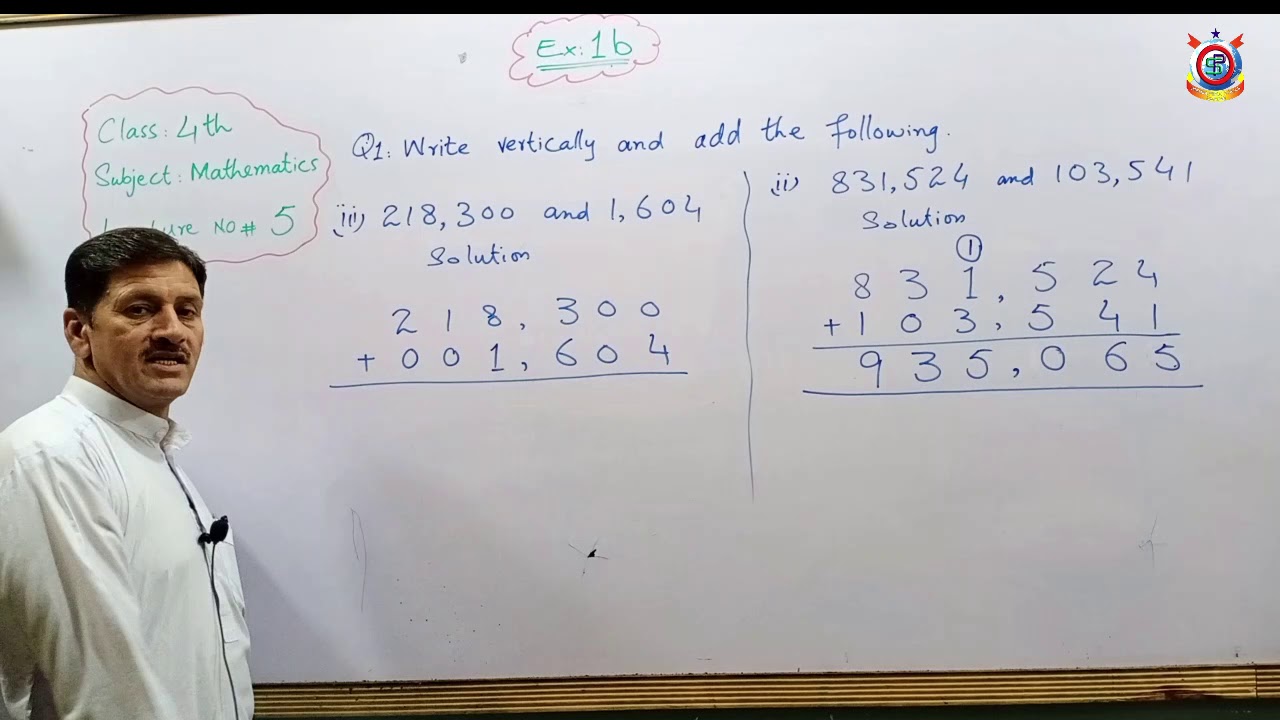 Ex: 1b
Class: 4th
Subject: Mathematics
NO# 5
Q1: Write vertically and add the following.
iii) 218,300 and 1,604
Solution
2 1 8, 3 0 0
+ 0 0 1, 6 0 4
ii) 831,524 and 103,541
Solution
1
8 3 1, 5 2 4
+ 1 0 3, 5 4 1
9 3 5, 0 6 5